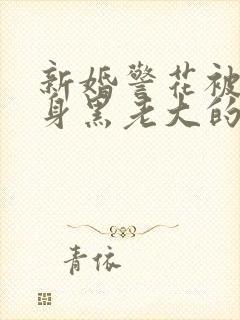 新婚警花被
身黑老大的
青依